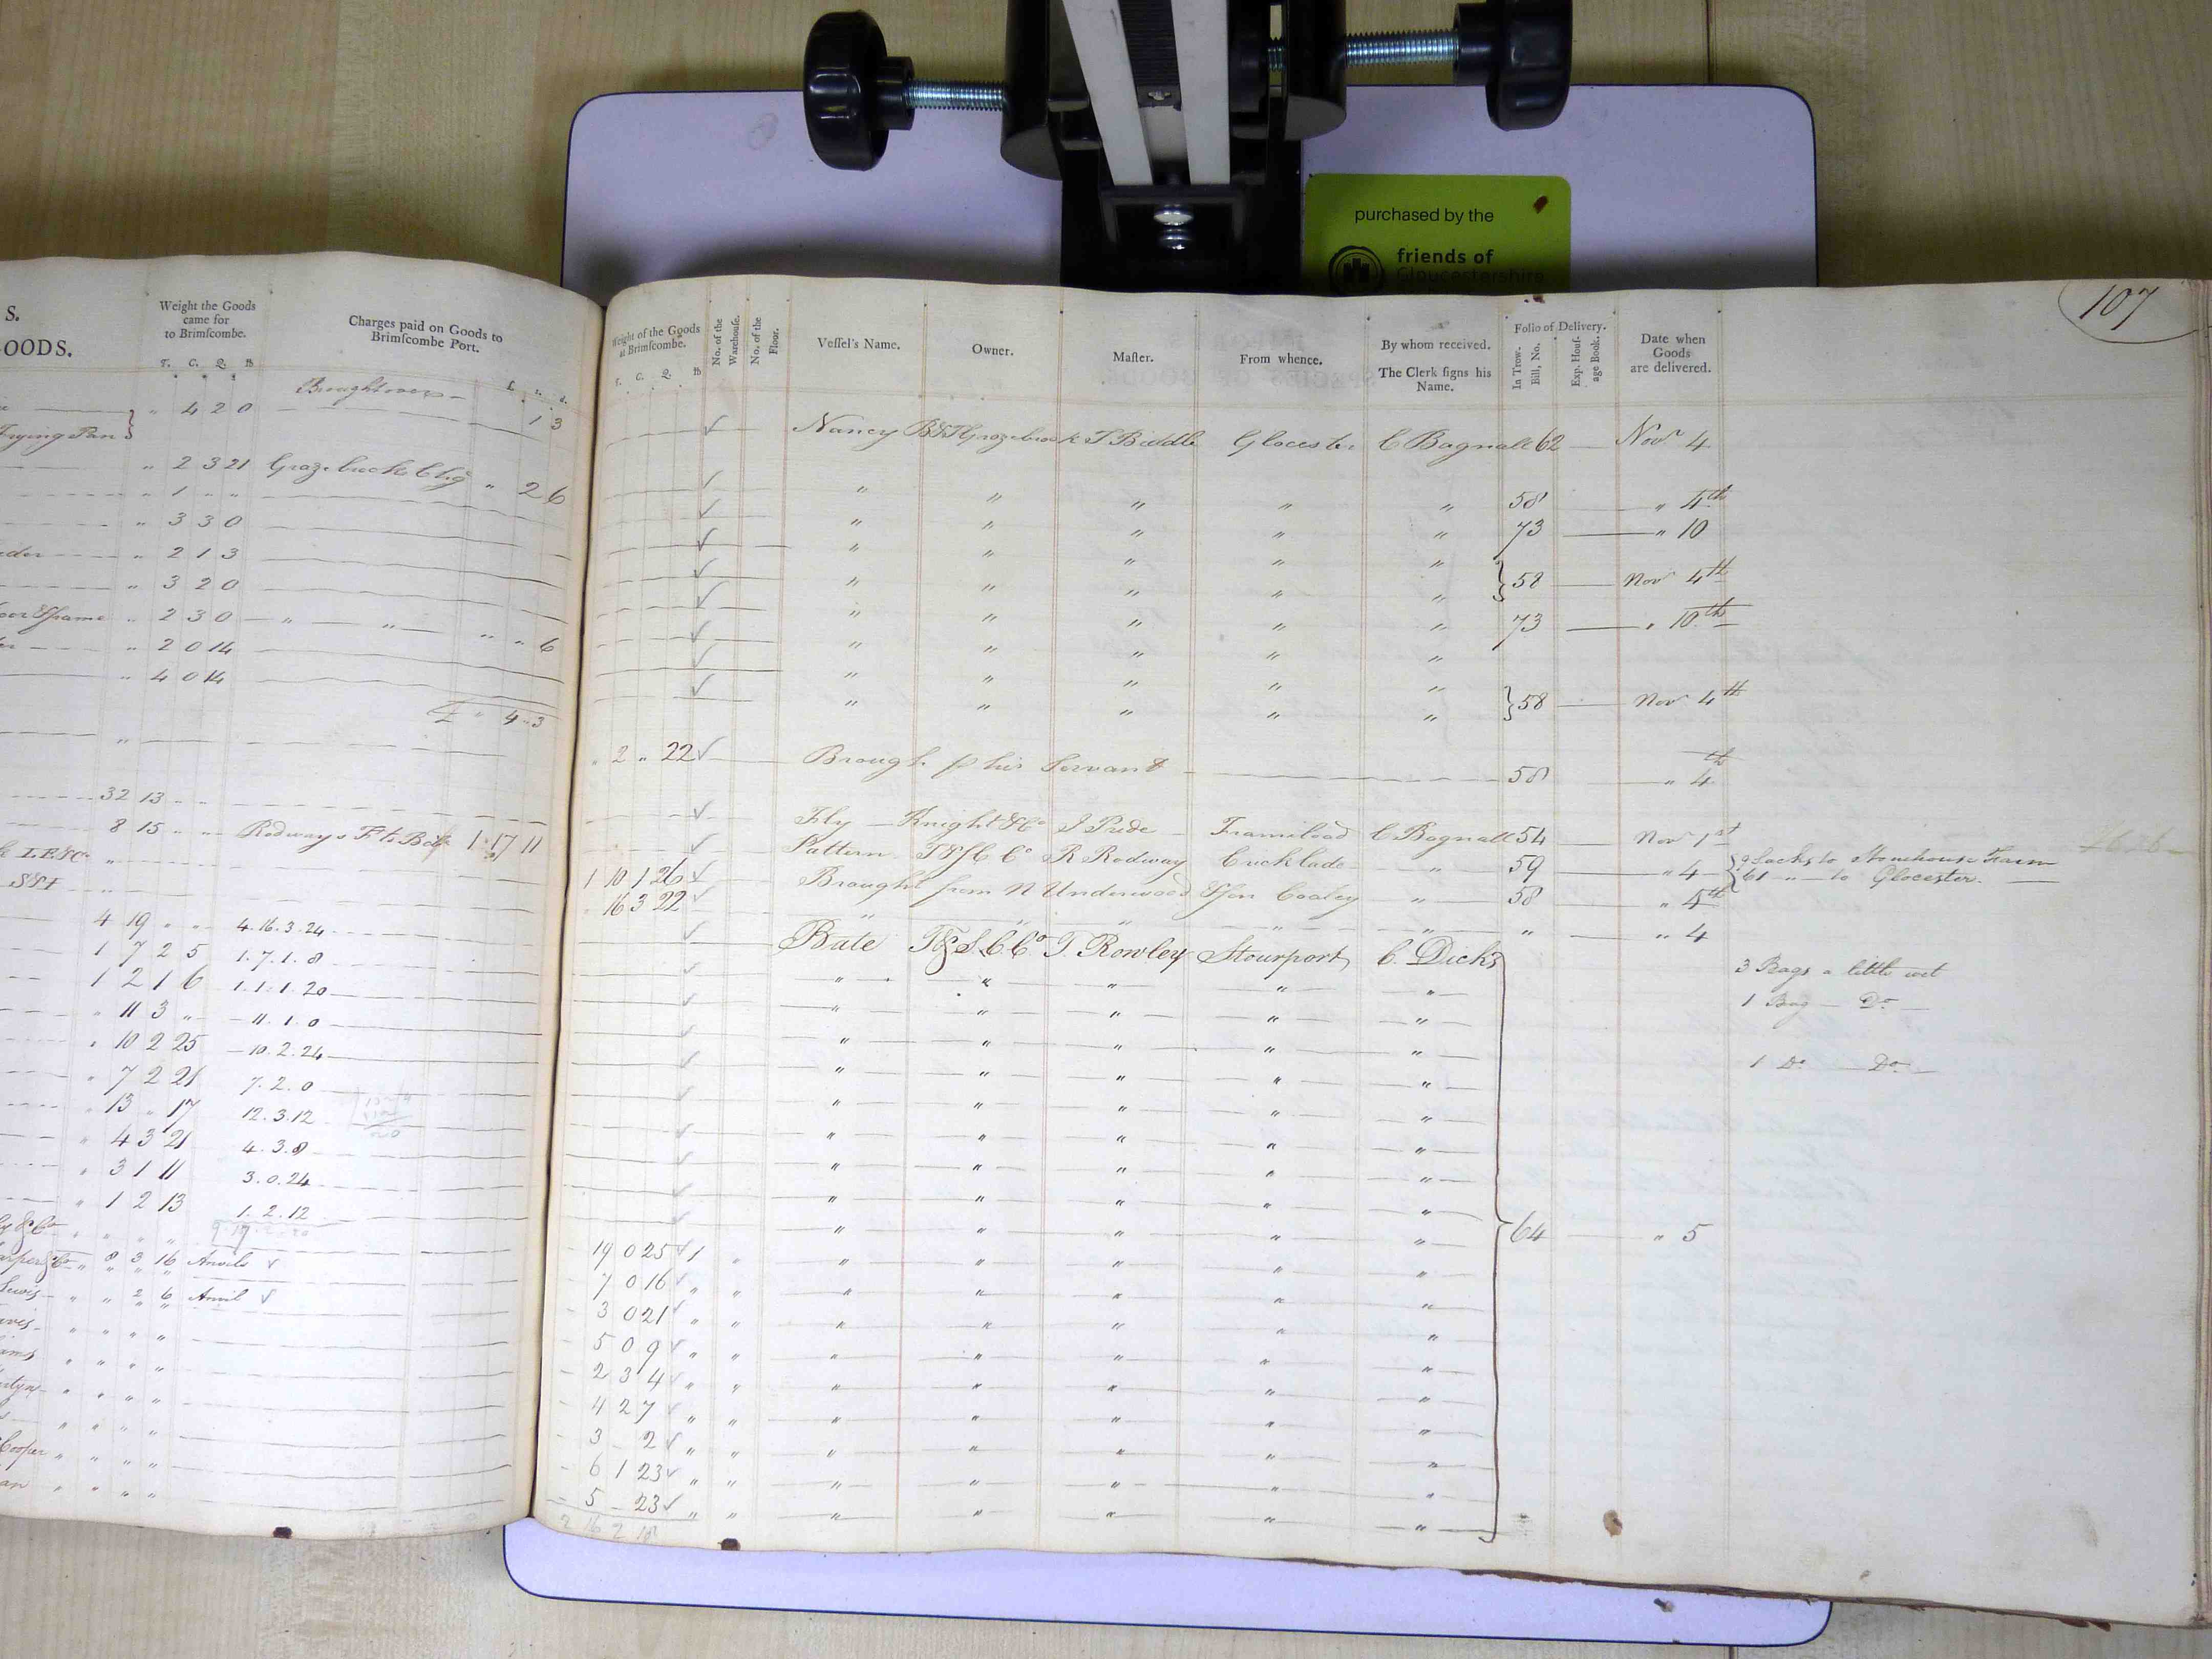 purchased by the
friends of
Gloucestershire
107
S.
OODS.
Weight the Goods
came for
to Brimſcombe.
T. C. Q. lb
Charges paid on Goods to
Brimſcombe Port.
£ s. d.
Brought over
" 4 2 0 1 3
Frying Pan
" 2 3 21 " 2 6
" 1 " "
" 3 3 0
" 2 1 3
" 3 2 0
" 2 3 0 " " " " 6
" 2 0 14
" 4 0 14
£ " 4 " 3
"
32 13 " "
8 15 " " 1 17 11
"
"
4 19 " " 4.16.3.24
1 7 2 5 1.7.1.8
1 2 1 6 1.1.1.20
" 11 3 " 11.1.0
" 10 2 25 10.2.24
" 7 2 21 7.2.0
" 13 " 17 12.3.12
" 4 3 21 4.3.8
" 3 1 11 3.0.24
" 1 2 13 1.2.12
" 8 3 16 Anvils
Lewis " " 2 6 Anvil
Cooper " " " "
Weight of the Goods
at Brimſcombe.
T. C. Q. lb
No. of the
Warehouſe.
No. of the
Floor.
Veſſel's Name.
Owner.
Maſter.
From whence.
By whom received.
The Clerk ſigns his
Name.
Folio of Delivery.
In Trow-
Bill, No.
Exp. Houſ-
age Book.
Date when
Goods
are delivered.
Nancy T Biddle Glocester C Bagnall 62 Novr 4
" " " " " 58 " 4th
" " " " " 73 " 10
" " " " "
" " " " " } 58 Novr 4th
" " " " " 73 " 10th
" " " " "
" " " " "
" " " " " } 58 Novr 4th
" 2 " 22 Brought p his Servant 58 " 4th
Fly Knight & Co J Pride Framiload C Bagnall 54 Novr 1st
Pattern T & S C Co R Rodway Cricklade " 59 " 4 { 9 Sacks to Stonehouse Farm
61 " to Glocester.
1 10 1 26 Brought from N Underwood & Son Coaley " 58 " 4th
" 16 3 22 " " " " " " " 4
Bate T & S. C Co T. Rowley Stourport C. Dicks
" " " " " 3 Bags a little wet
" " " " " 1 Bag Do
" " " " "
" " " " " 1 Do Do
" " " " "
" " " " "
" " " " "
" " " " "
" " " " " } 64 " 5
19 0 25 1 " " " " " "
7 0 16 " " " " " " "
3 0 21 " " " " " " "
5 0 9 " " " " " " "
2 3 4 " " " " " " "
4 2 7 " " " " " " "
3 - 2 " " " " " " "
6 1 23 " " " " " " "
5 - 23 " " " " " " "
2 16 2 18